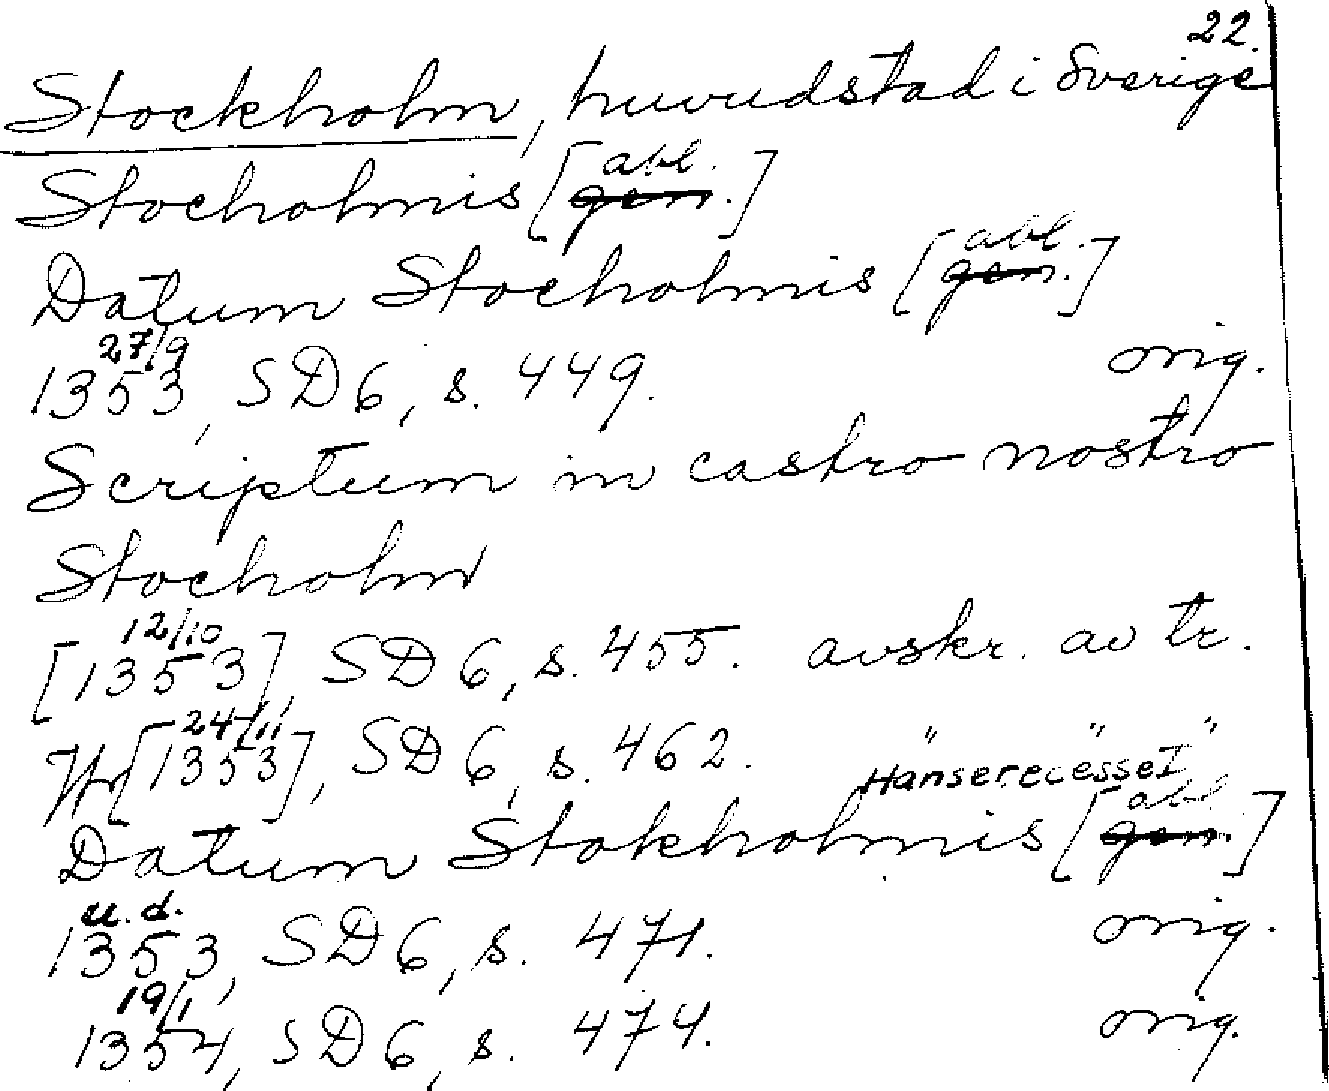 22.
Stockholm, huvudstad i Sverige
Stocholmis [gen. abl.]
Datum Stocholmis [gen. abl.]
27/9
1353, SD 6, s. 449. orig.
Scriptum in castro nostro
Stocholm
12/10
[1353], SD 6, s. 455. avskr. av tr.
24/11
[1353], SD 6, s. 462. " " "
Hanserecesse I
Datum Stokholmis [gen. abl.]
u. d.
1353, SD 6, s. 471. orig.
19/1
1354, SD 6, s. 474. orig.